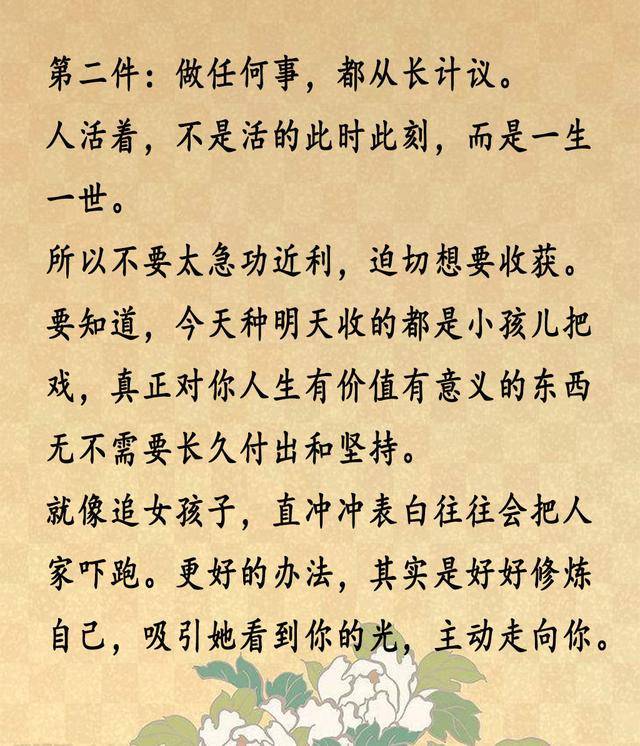 第二件：做任何事，都从长计议。
人活着，不是活的此时此刻，而是一生
一世。
所以不要太急功近利，迫切想要收获。
要知道，今天种明天收的都是小孩儿把
戏，真正对你人生有价值有意义的东西
无不需要长久付出和坚持。
就像追女孩子，直冲冲表白往往会把人
家吓跑。更好的办法，其实是好好修炼
自己，吸引她看到你的光，主动走向你。